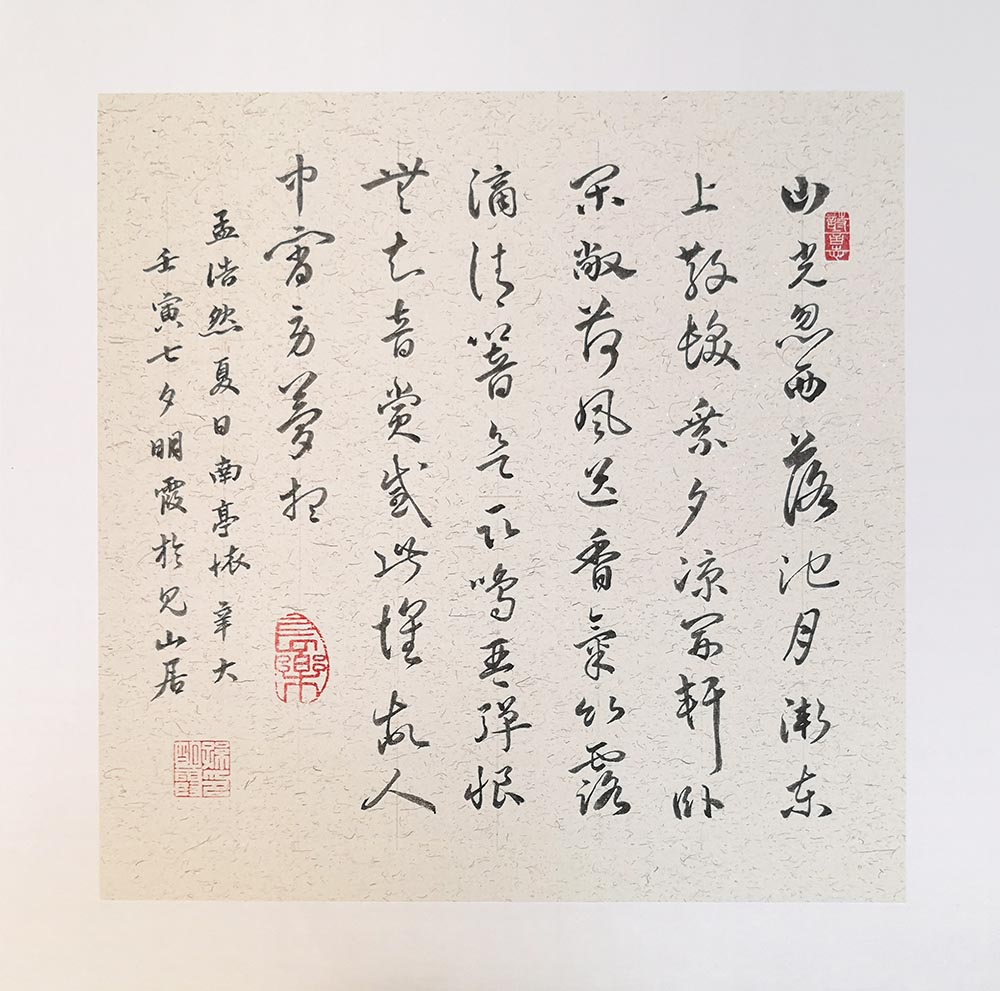 山光忽西落池月漸東
上散髮乘夕凉開軒卧
閑敞荷風送香氣竹露
滴清響欲取鳴琴彈恨
無知音賞感此懷故人
中宵勞夢想
長樂
孟浩然夏日南亭懷辛大
壬寅七夕明霞於見山居